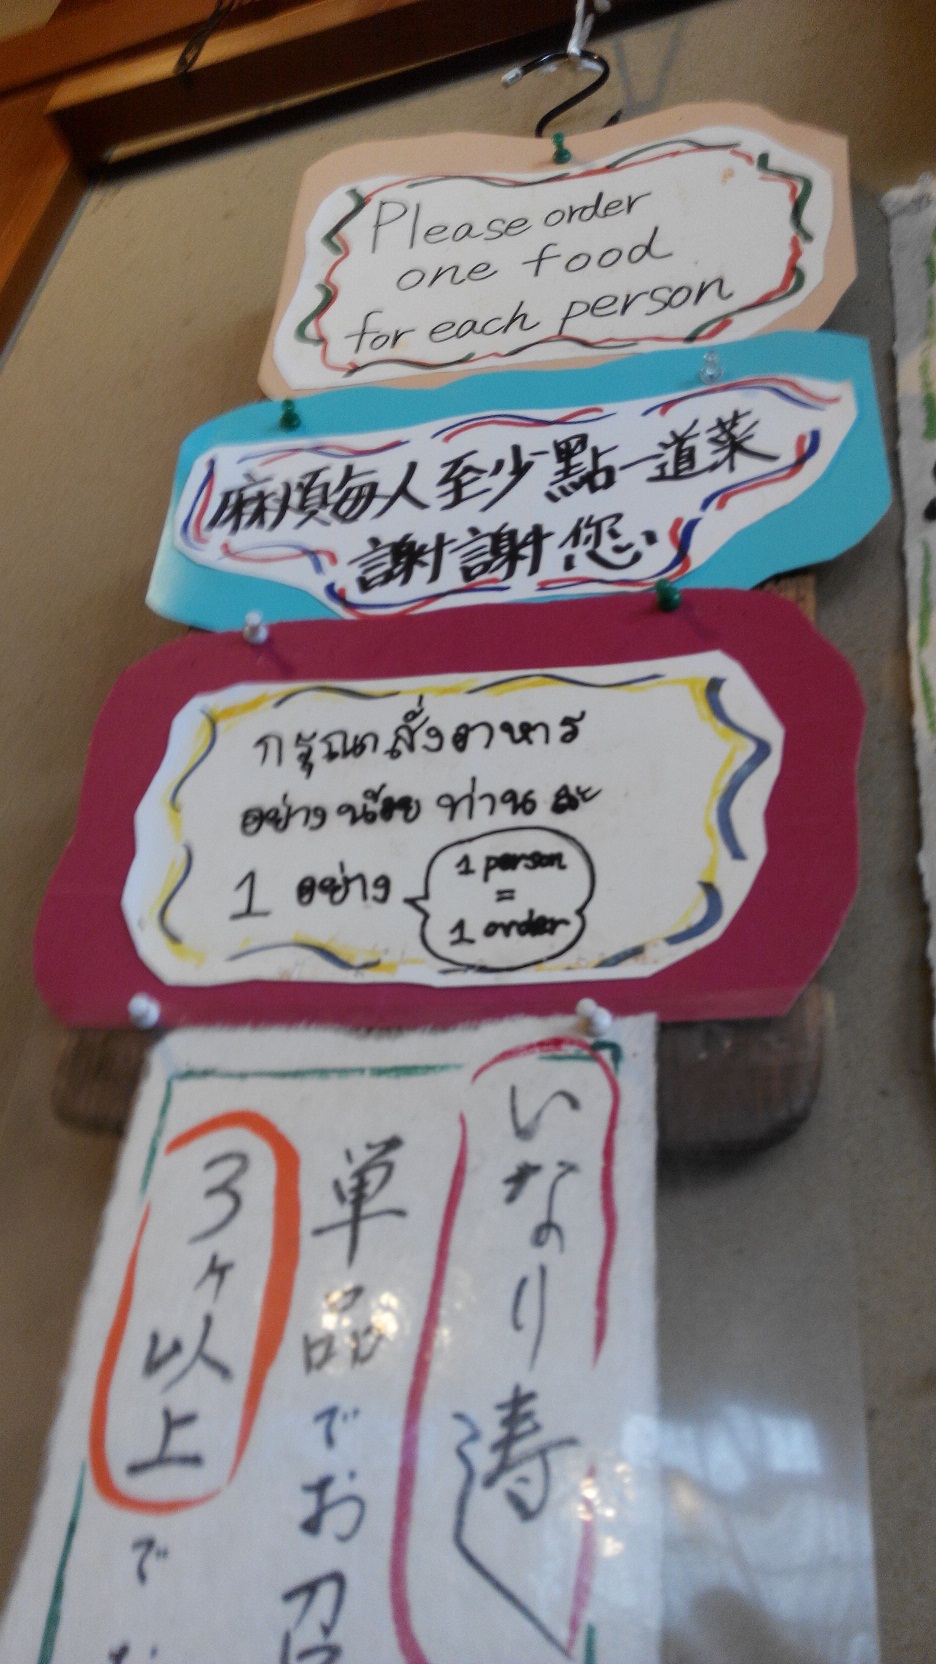 Please order
one food
for each person
麻煩每人至少點一道菜
謝謝您
กรุณาสั่งอาหาร
อย่างน้อย ท่าน ละ
1 อย่าง
1 person
=
1 order
いなり寿
単品でお召
3ヶ以上で